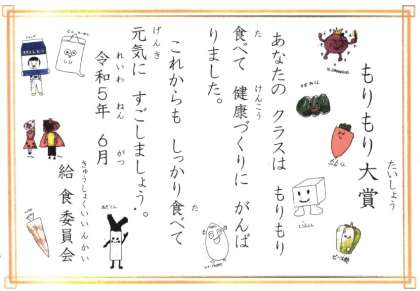 もりもり大賞
たいしょう
あなたの クラスは もりもり
食べて 健康づくりに がんば
た
けんこう
りました。
これからも しっかり食べて
た
元気に すごしましょう。
げんき
令和5年 6月
れいわ ねん がつ
給食委員会
きゅうしょくいいんかい